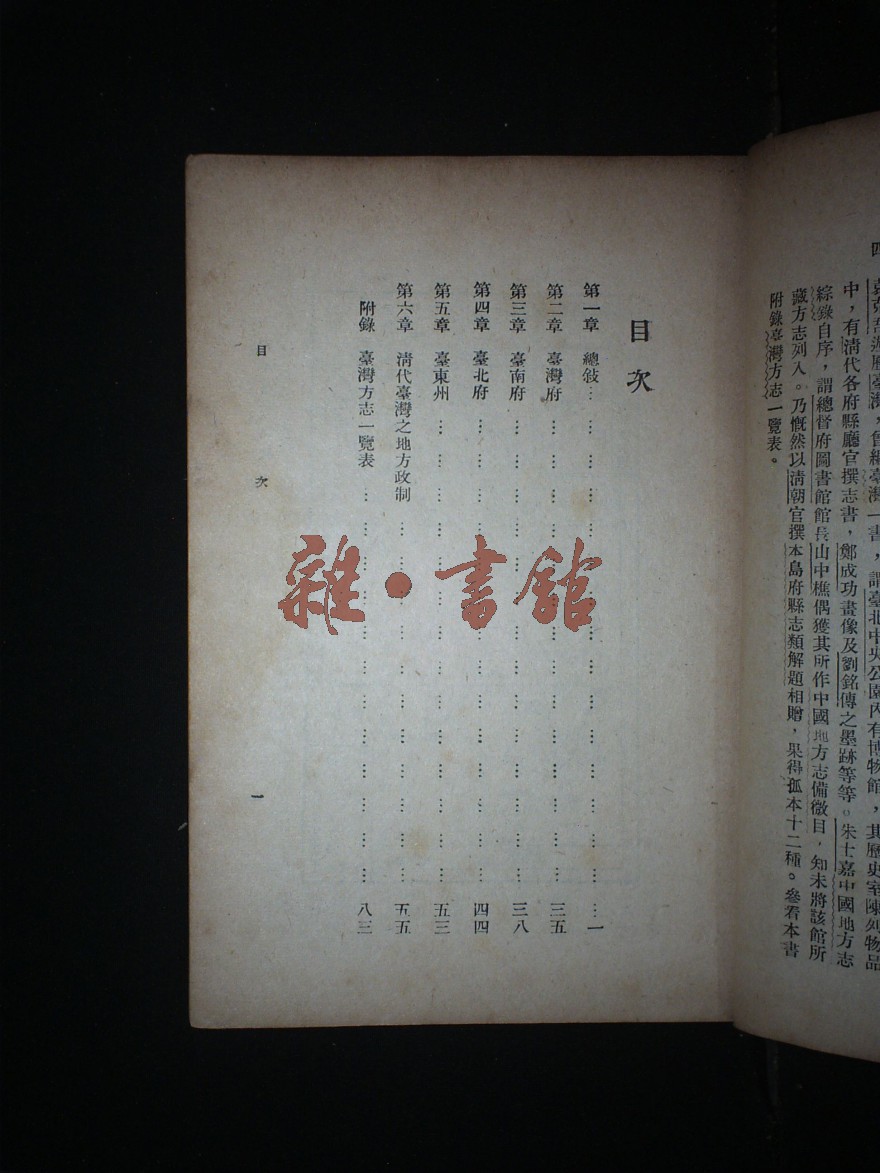 臺灣,曾編臺灣一書,謂臺北中央公園內有博物館,其歷史室陳列物品
中,有清代各府縣廳官撰志書,鄭成功畫像及劉銘傳之墨跡等等。朱士嘉中國地方志
綜錄自序,謂總督府圖書館館長山中樵偶獲其所作中國地方志備徵目,知未將該館所
藏方志列入。乃慨然以清朝官撰本島府縣志類解題相贈,果得孤本十二種。參看本書
附錄臺灣方志一覽表。
四
目次
第一章 總敍…………………………一
第二章 臺灣府…………………………三五
第三章 臺南府…………………………三八
第四章 臺北府…………………………四四
第五章 臺東州…………………………五三
第六章 清代臺灣之地方政制…………………………五五
附錄 臺灣方志一覽表…………………………八三
目次 一
雜·書館